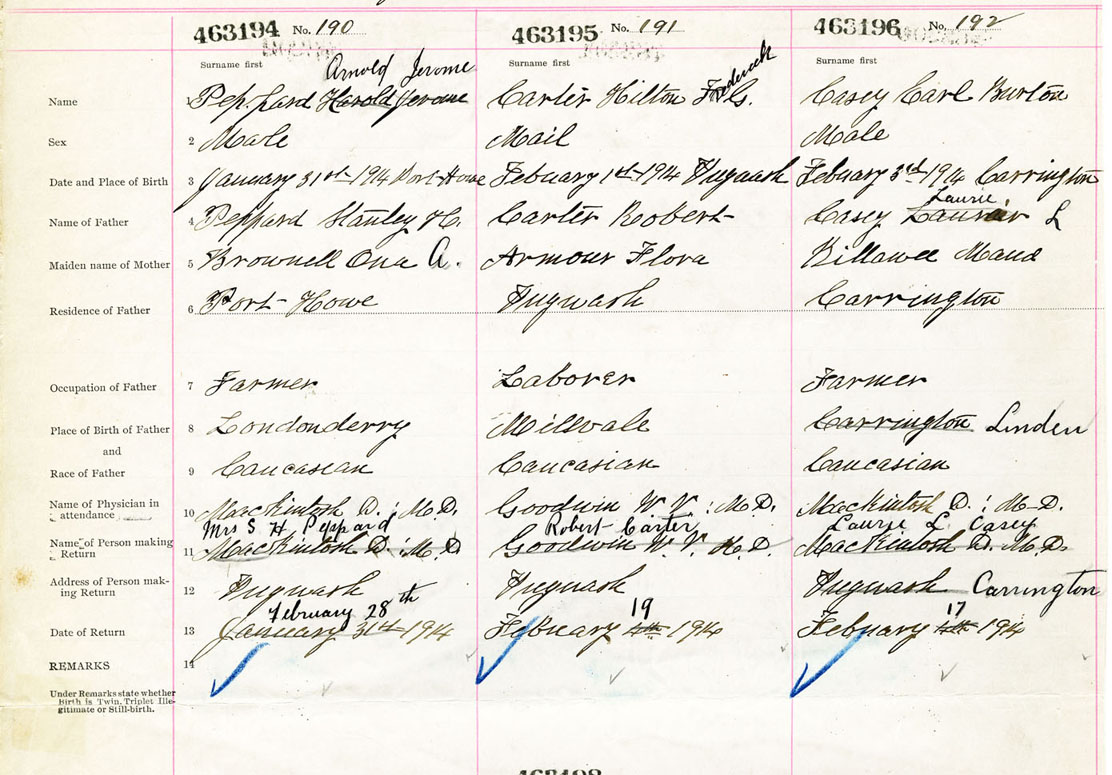 463194 No. 190 463195 No. 191 463196 No. 192
Surname first Surname first Surname first
Arnold Jerome Frederick
Name 1 Peppard Harold Jerome Carter Hilton F. G. Casey Carl Burton
Sex 2 Male Mail Male
Date and Place of Birth 3 January 31st 1914 Port Howe Febuary 1st 1914 Pugwash Febuary 3rd 1914 Carrington
Laurie
Name of Father 4 Peppard Stanley H. Carter Roobert Casey L
Maiden name of Mother 5 Brownell Ona A. Armour Flora Maud
Residence of Father 6 Port Howe Pugwash Carrington
Occupation of Father 7 Farmer Laborer Farmer
Place of Birth of Father 8 Londonderry Millvale Carrington Linden
and
Race of Father 9 Caucasian Caucasian Caucasian
Name of Physician in
attendance 10 MacKintosh D. : M.D. Goodwin W. V. : M.D. MacKintosh D. : M.D.
Mrs S H Peppard Robert Carter Laurie L. Casey
Name of Person making
Return 11 MacKintosh D. : M.D. Goodwin W. V. M.D. MacKintosh D. M.D.
Address of Person mak-
ing Return 12 Pugwash Pugwash Pugwash Carrington
February 28th 19 17
Date of Return 13 January 31st 1914 Febuary 4th 1914 Febuary 1914
REMARKS 14
Under Remarks state whether
Birth is Twin, Triplet Ille-
gitimate or Still-birth.
463198